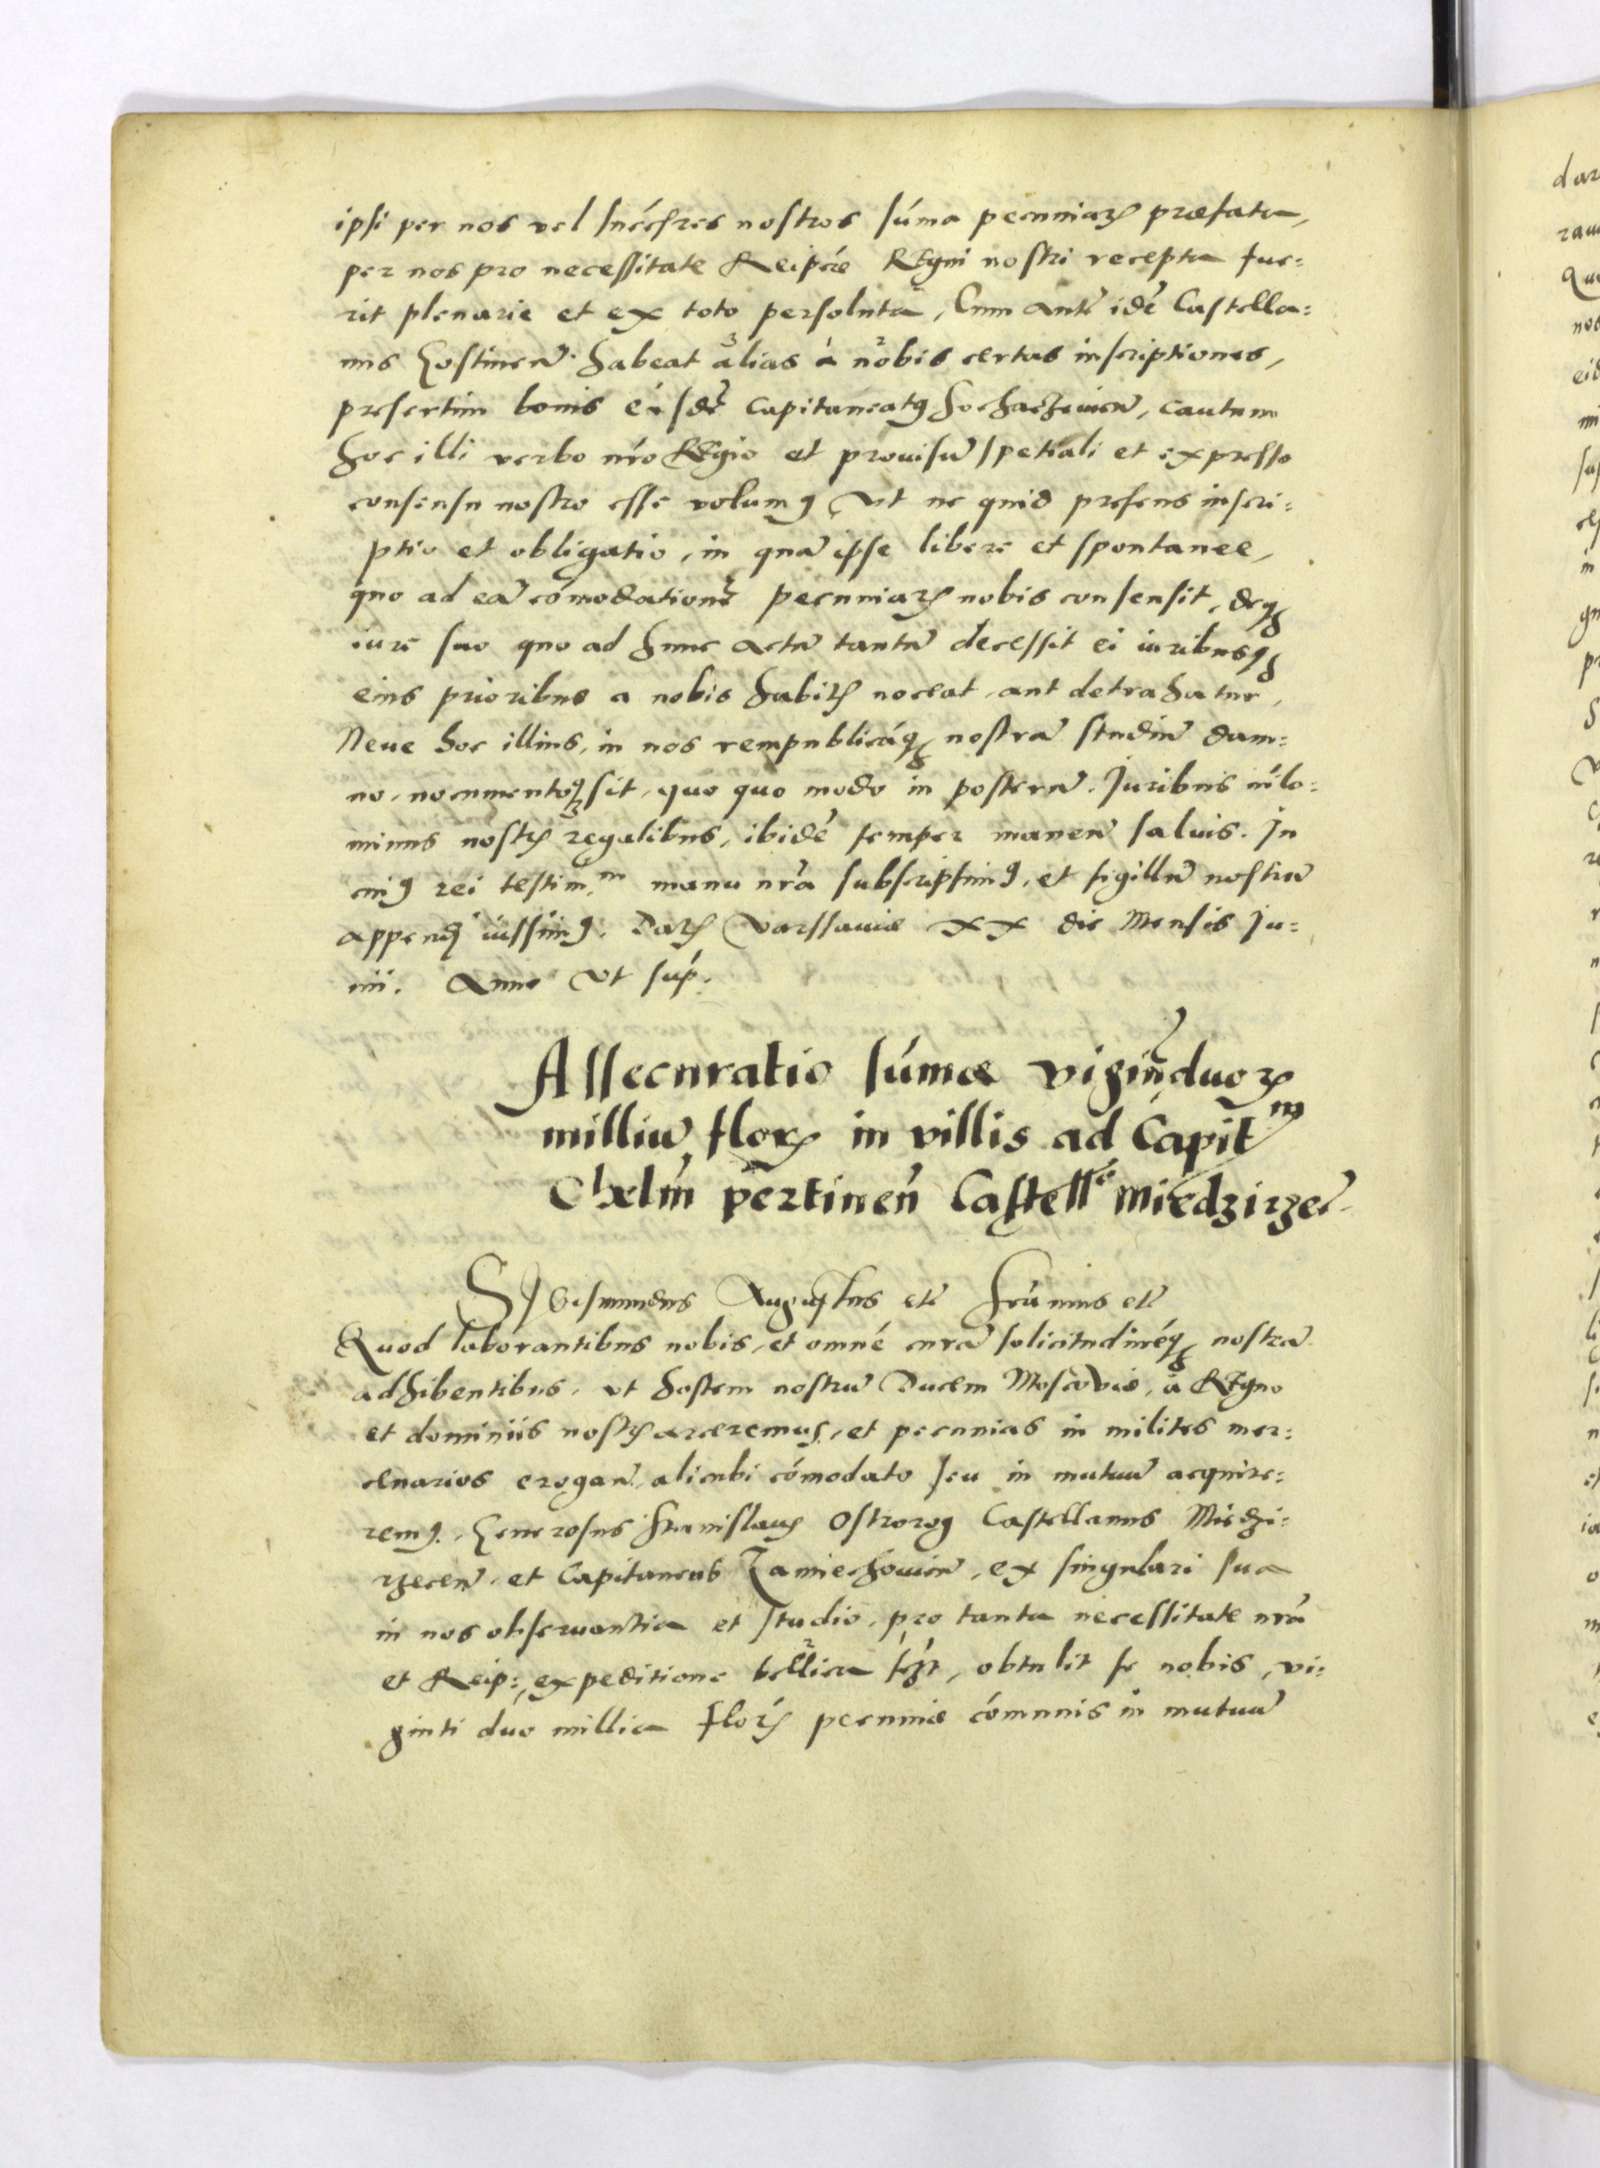 ipsi per nos vel succesres nostros sum̃a pecuniarꝝ præfata,
per nos pro necessitate Reipcæ Regni nostri recepta fue=
rit plenarie et ex toto persoluta, Cum autẽ idẽ Castella=
nus Gostinen̄. habeat alias à nobis certas inscriptiones,
presertim bonis eisdẽ Capitaneatꝰ Sochaczewien̄, cautum
hoc illi verbo nr̃o Regio et prouisum̄ spetiali et expresso
consensu nostro esse volumꝰ, Vt ne quid presens inscri=
ptio et obligatio, in quã ipse libere et spontanee,
quo ad eã cõmodationẽ pecuniarꝝ nobis consensit, deqꝫ
iure suo quo ad hunc actũ tantũ decessit ei iuribusqꝫ
eius prioribus a nobis habitꝭ noceat, aut detrahatur,
Neue hoc illius, in nos rempublicãqꝫ nostrã studiũ dam=
no, nocumentoqꝫ sit, quo quo modo in posterũ. Juribus nĩlo=
minus nostrꝭ regalibus, ibidẽ semper manen̄ saluis. In
cuiꝰ rei testim.m manu nrã subscripsimꝰ, et sigillũ nostrũ
appendj iussimꝰ. Datꝭ Varssauiæ XX die Mensis Ju=
nij. Anno Vt sup̃.
Assecuratio sum̃æ viginti duorꝝ
milliũ florꝝ in villis ad Capit.m
Chelm̃ pertinen̄ Castell.o Miedzirzec̃.
Sigismundus Augustus etc̃ Sc̃ũ nius etc̃
Quod laborantibus nobis, et omnẽ curã solicitudinẽqꝫ nostrã
adhibentibus, vt hostem nostrũ Ducem Moscoviæ, à Regno
et dominiis nostrꝭ arceremus, et pecunias in milites mer=
cenarios erogan̄, alicubi cõmodato seu in mutuũ acquire=
remꝰ. Generosus Stanislaus Ostrorog Castellanus Miedzi=
rzecen̄. et Capitaneus Zamiechowien̄, ex singulari sua
in nos obseruantia et studio, pro tanta necessitate nrã
et Reip:, expeditione bellica obtulit se nobis, vi=
ginti duo millia florꝝ pecuniæ cõmunis in mutuũ